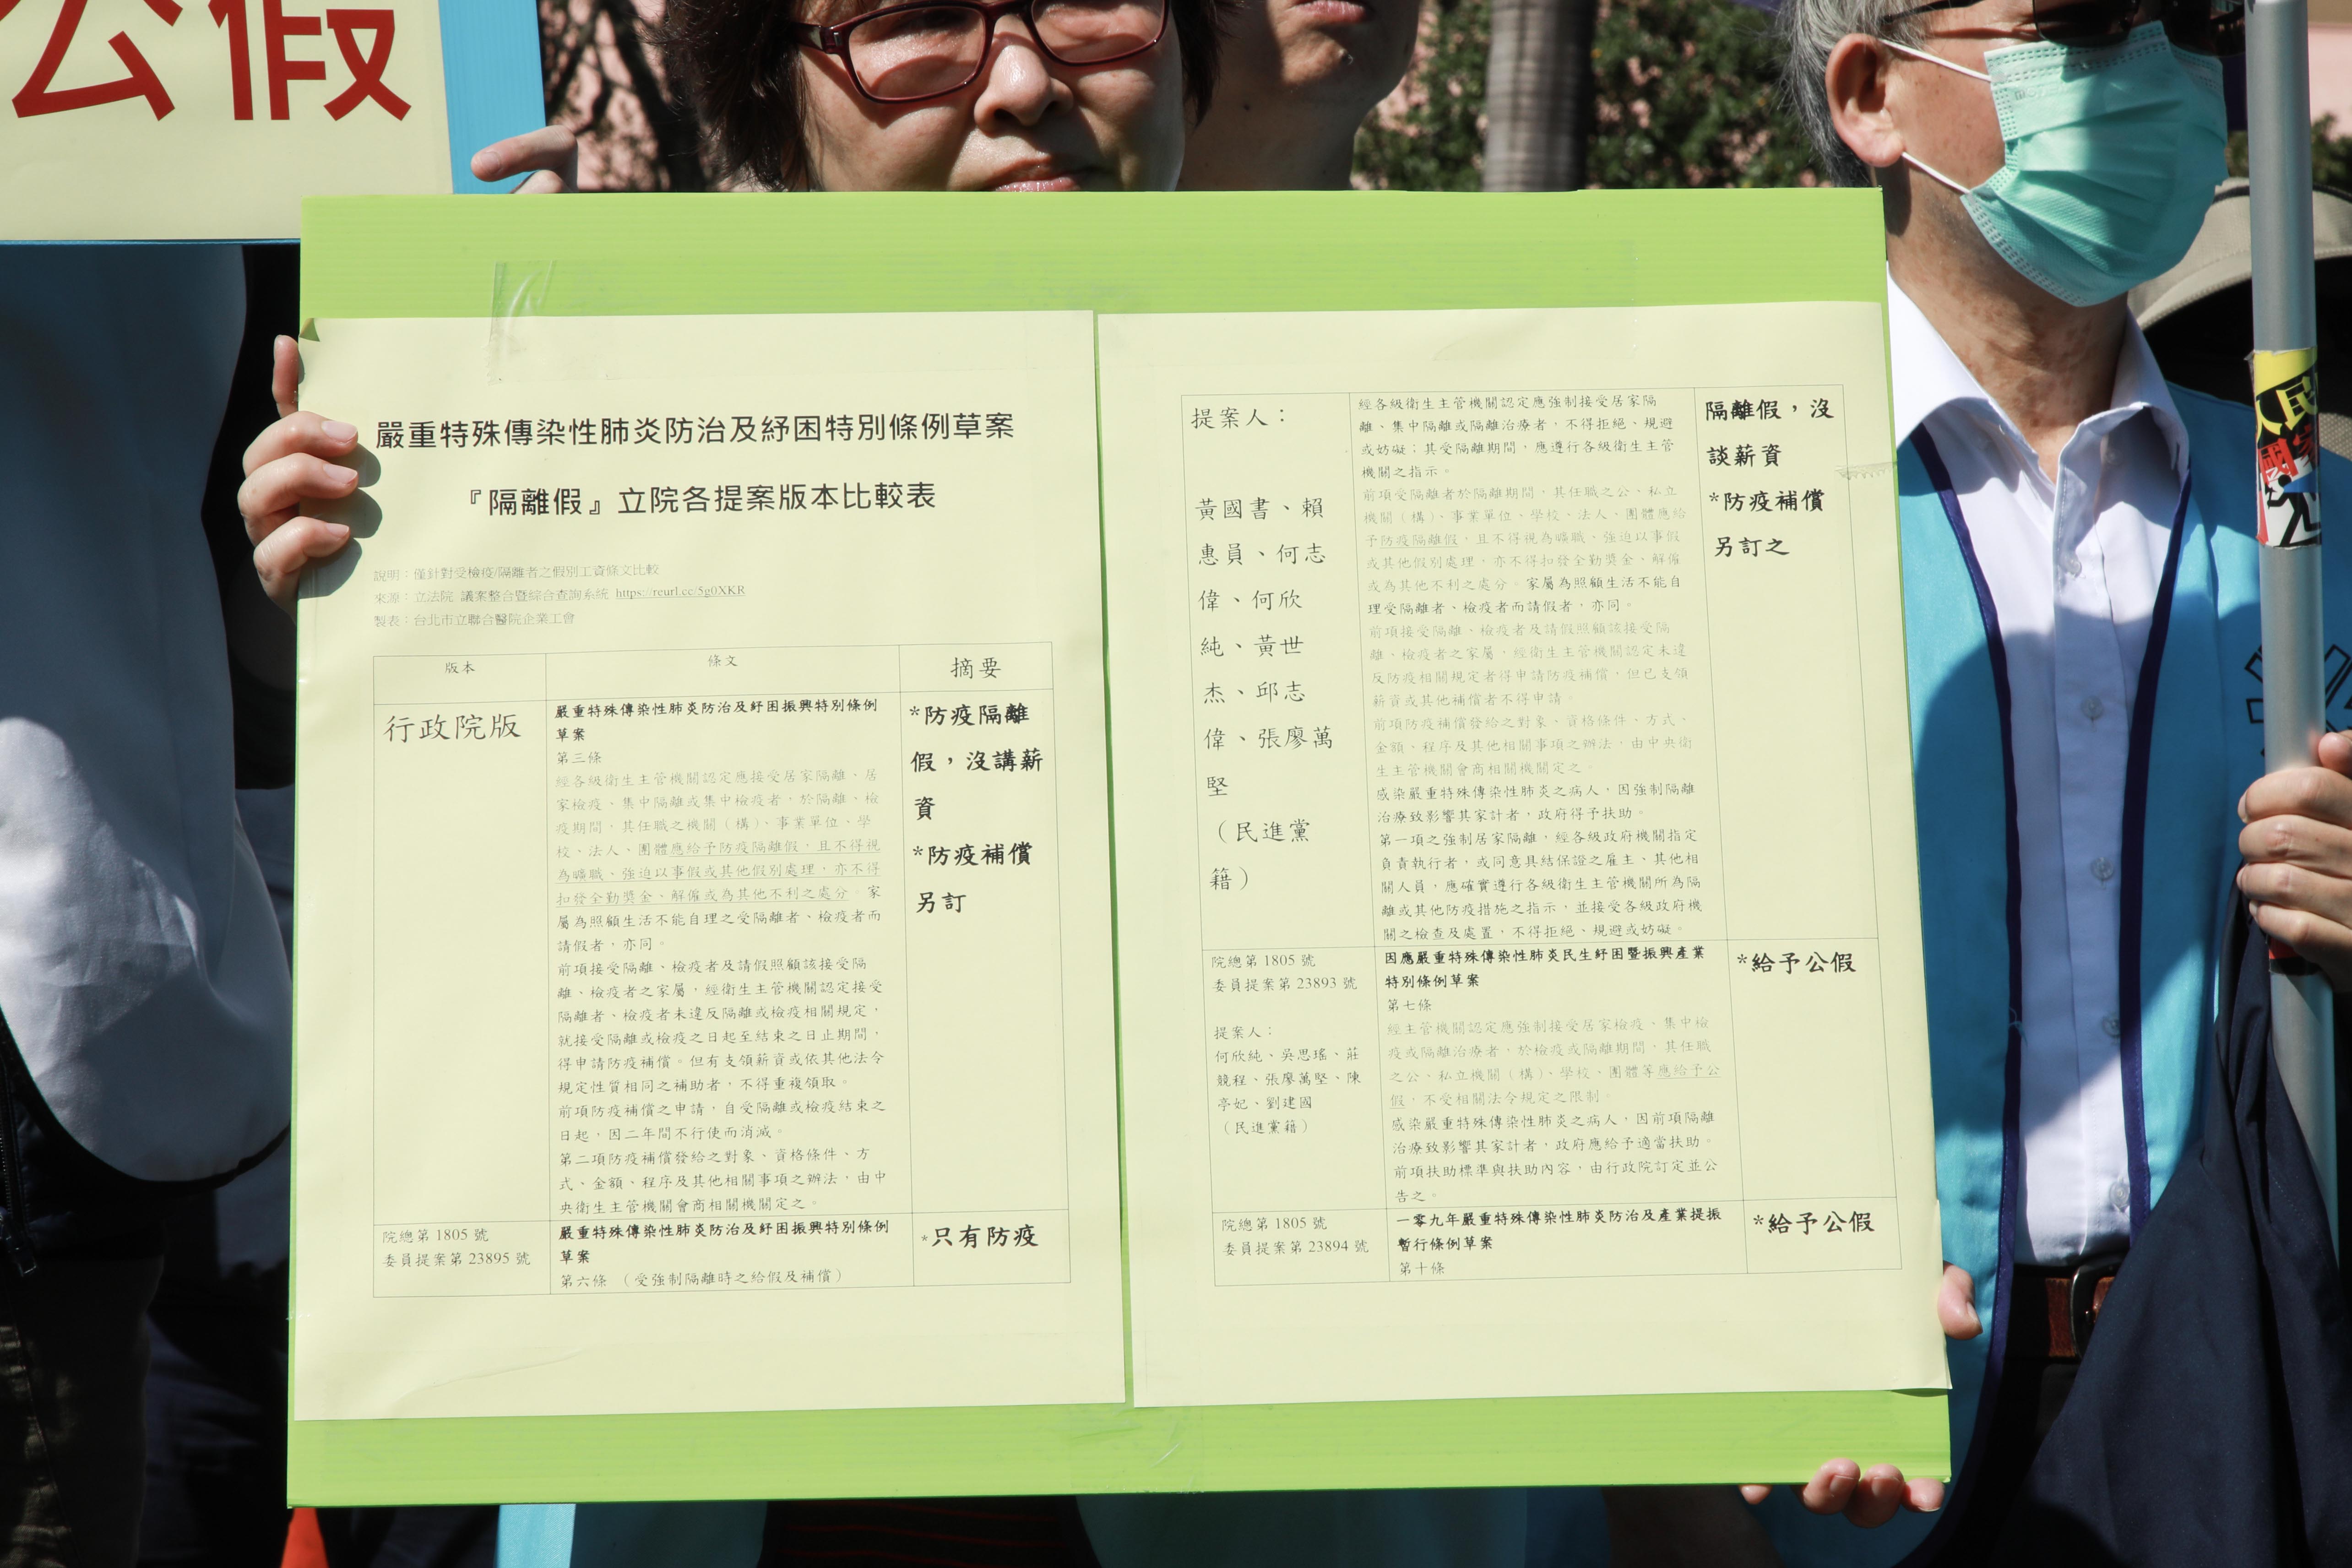 公假
嚴重特殊傳染性肺炎防治及紓困特別條例草案
『隔離假』立院各提案版本比較表
說明：僅針對受檢疫/隔離者之假別工資條文比較
來源：立法院 議案整合暨綜合查詢系統 https://reurl.cc/5g0XKR
製表：台北市立聯合醫院企業工會
版本
條文
摘要
行政院版
嚴重特殊傳染性肺炎防治及紓困振興特別條例
草案
第三條
經各級衛生主管機關認定應接受居家隔離、居
家檢疫、集中隔離或集中檢疫者，於隔離、檢
疫期間，其任職之機關（構）、事業單位、學
校、法人、團體應給予防疫隔離假，且不得視
為曠職、強迫以事假或其他假別處理，亦不得
扣發全勤獎金、解僱或為其他不利之處分。家
屬為照顧生活不能自理之受隔離者、檢疫者而
請假者，亦同。
前項接受隔離、檢疫者及請假照顧該接受隔
離、檢疫者之家屬，經衛生主管機關認定接受
隔離者、檢疫者未違反隔離或檢疫相關規定，
就接受隔離或檢疫之日起至結束之日止期間，
得申請防疫補償。但有支領薪資或依其他法令
規定性質相同之補助者，不得重複領取。
前項防疫補償之申請，自受隔離或檢疫結束之
日起，因二年間不行使而消滅。
第二項防疫補償發給之對象、資格條件、方
式、金額、程序及其他相關事項之辦法，由中
央衛生主管機關會商相關機關定之。
*防疫隔離
假，沒講薪
資
*防疫補償
另訂
院總第 1805 號
委員提案第 23895 號
嚴重特殊傳染性肺炎防治及紓困振興特別條例
草案
第六條 （受強制隔離時之給假及補償）
*只有防疫
提案人：
黃國書、賴
惠員、何志
偉、何欣
純、黃世
杰、邱志
偉、張廖萬
堅
（民進黨
籍）
經各級衛生主管機關認定應強制接受居家隔
離、集中隔離或隔離治療者，不得拒絕、規避
或妨礙；其受隔離期間，應遵行各級衛生主管
機關之指示。
前項受隔離者於隔離期間，其任職之公、私立
機關（構）、事業單位、學校、法人、團體應給
予防疫隔離假，且不得視為曠職、強迫以事假
或其他假別處理，亦不得扣發全勤獎金、解僱
或為其他不利之處分。家屬為照顧生活不能自
理受隔離者、檢疫者而請假者，亦同。
前項接受隔離、檢疫者及請假照顧該接受隔
離、檢疫者之家屬，經衛生主管機關認定未違
反防疫相關規定者得申請防疫補償，但已支領
薪資或其他補償者不得申請。
前項防疫補償發給之對象、資格條件、方式、
金額、程序及其他相關事項之辦法，由中央衛
生主管機關會商相關機關定之。
感染嚴重特殊傳染性肺炎之病人，因強制隔離
治療致影響其家計者，政府得予扶助。
第一項之強制居家隔離，經各級政府機關指定
負責執行者，或同意具結保證之雇主、其他相
關人員，應確實遵行各級衛生主管機關所為隔
離或其他防疫措施之指示，並接受各級政府機
關之檢查及處置，不得拒絕、規避或妨礙。
隔離假，沒
談薪資
*防疫補償
另訂之
院總第 1805 號
委員提案第 23893 號
提案人：
何欣純、吳思瑤、莊
競程、張廖萬堅、陳
亭妃、劉建國
（民進黨籍）
因應嚴重特殊傳染性肺炎民生紓困暨振興產業
特別條例草案
第七條
經主管機關認定應強制接受居家檢疫、集中檢
疫或隔離治療者，於檢疫或隔離期間，其任職
之公、私立機關（構）、學校、團體等應給予公
假，不受相關法令規定之限制。
感染嚴重特殊傳染性肺炎之病人，因前項隔離
治療致影響其家計者，政府應給予適當扶助。
前項扶助標準與扶助內容，由行政院訂定並公
告之。
*給予公假
院總第 1805 號
委員提案第 23894 號
一零九年嚴重特殊傳染性肺炎防治及產業提振
暫行條例草案
第十條
*給予公假
人民
國家